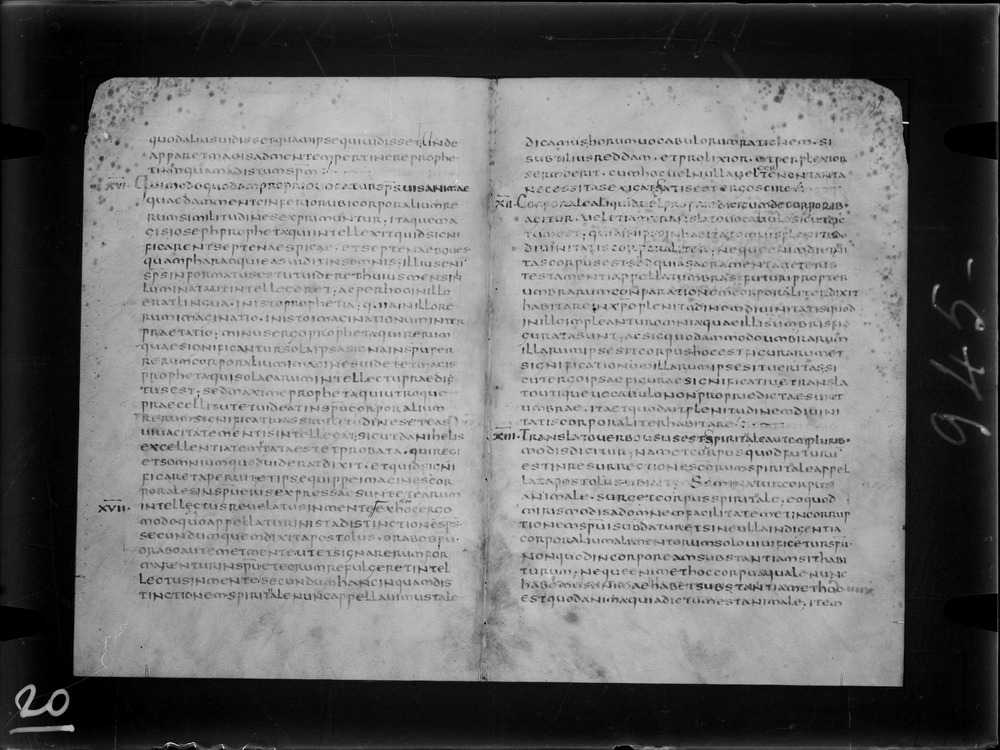 quodaliusuidissetquamipsequiuidisset; Unde
apparetmagisadmentempertinereprophe
tiamquamadistumspm
XVI. Quomodoquodamproprio uoceturspsuisanimae
quaedammenteinferiorubicorporaliumre
rumsimilitudinesexprimuntur. itaquema
gisiosephprophetaquiintellexitquidsigni
ficarentseptenaespicae. etseptenaeboues.
quampharaoquieasuiditinsomnis; illiuseni
spsinformatusestutuideret huiusmensil
luminatautintellegeret, acperhocinillo
eratlingua. inistoprophetia; quiainillore
rumimaginatio. inistoimaginationuminter
praetatio; minusergopropheta quirerum
quaesignificantursolaipsasignainspuper
rerumcorporaliumimaginesuidet etmagis
prophetaquisolaearumintellectupraedi
tusest; sedmaximeprophetaquiutroque
praecellitutetuideatinspucorporalium
rerumsignificatiuassimilitudineseteas
uiuacitatementisintellegat; sicutdanihelis
excellentiatemtataestetprobata. quiregi
etsomniumquoduideratdixit. etquidsigni
ficaretaperuit; etipsequippeimaginescor
poralesinspueiusexpressaesuntetearum
XVII. intellectusreuelatusinmente; Exhocergo
modoquoappellaturinistadistinctionesps.
secundumquemdixitapostolus. orabospu.
oraboautemetmenteutetsignarerumfor
marenturinspueteorumrefulgeretintel
lectusinmente; secundumhancinquamdis
tinctionemspiritalenuncappellauimustale
dicamushorumuocabulorumrationem. si
subtiliusreddam. etprolixior. etperplexior
sermoerit. cumhocuelnullauelcertenontanta
necessitasexigat; Satisestergoscire
XII. Corporalealiquiduelpropriedicicumdecorporib.
agitur. uel etiamtranslatouocabulosicutdic
tumest; quiainipsoinhabitatomnisplenitudo
diuinitatis corporaliter; nequeenimdiuini
tascorpusestsedquiasacramentaueteris
testamentiappellatumbrasfuturipropter
umbrarumconparationemcorporaliterdixit
habitareinxpoplenitudinemdiuinitatisquod
inilloimpleanturomniaquaeillisumbrisfi
guratasunt; acsicquodammodoumbrarum
illarumipsesitcorpushocestfigurarumet
significationumillarumipsesitueritas; si
cutergoipsaefiguraesignificatiuetransla
toutiqueuocabulononpropriedictaesunt
umbrae. itaetquodaitplenitudinemdiuini
tatiscorporaliterhabitare
XIII. Translatouerbosusest; Spiritaleautempluribus
modisdicitur. namet corpusquodfuturu
estinresurrectionescorumspiritaleappel
latapostolus Seminaturcorpus
animale. surgetcorpusspiritale. eoquod
mirismodisadomnemfacilitatemetincorrup
tionemspuisubdaturetsineullaindigentia
corporaliumalimentorumsolouiuificeturspu
nonquodincorpoream substantiamsithabi
turum; nequeenimethoccorpusqualenunc
habemusanimaehabetsubstantiamethoc
estquodanimaquiadictumestanimale; item
20
945-